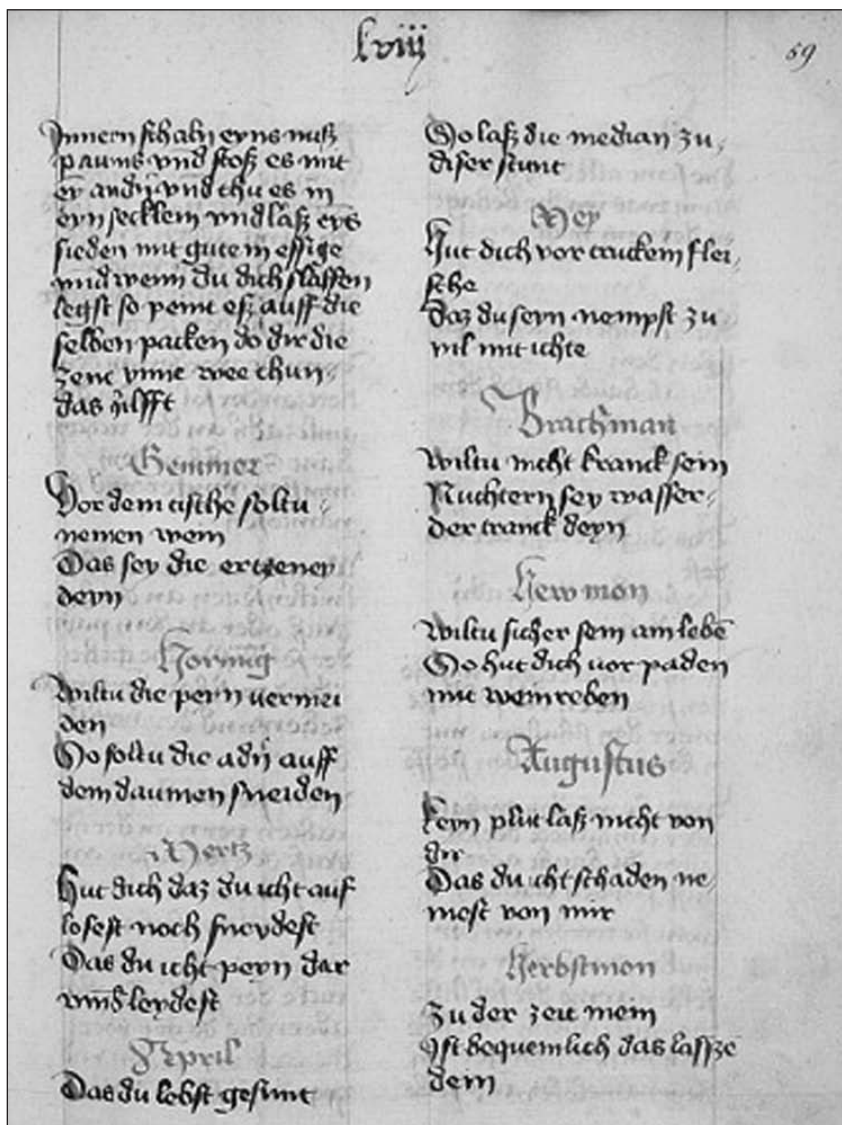 lviij
59
Innern schaln eyns nuß
paums vnd stoß es mit
ey andn̄ vnd thu es in
eyn secklein vnd laß eyns
sieden mit gutem essige
vnd wenn du dich slaffen
legst so pint eß auff die
selben packen do dir die
zene ynne wee thun
das hilfft
Genner
Vor dem tische soltu
nemen wein
Das sey die ertzeney
deyn
Hornug
Wiltu die peyn vermei
den
So soltu die adn̄ auff
dem daumen sneiden
Mertz
Hut dich daz du icht auf
losest noch sneydest
Das du icht peyn dar
vmb leydest
April
Das du lebst gesunt
So laß die median zu
diser stunt
Mey
Hut dich vor truckem flei
sche
Daz du seyn nempst zu
vil mit ichte
Brachman
Wiltu nicht kranck sein
Nuchtern sey wasser
der tranck deyn
Hewmon
Wiltu sicher sein am lebē
So hut dich vor paden
mit weinreben
Augustus
Keyn plut laß nicht von
dir
Das du icht schaden ne
mest von mir
Herbstmon
Zu der zeit mein
Ist bequemlich das lassze
dein